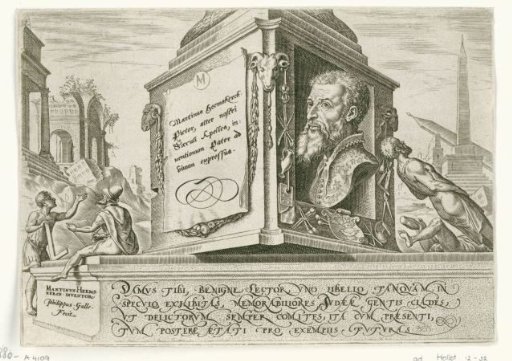 M
Martinus Hermskerck
Pictor, alter nostri
Sæculi Apelles, in-
ventionum Pater ad
vivum expressus.
MARTINVS HEEMS
KERCK INVENTOR.
Philippus Galle
Fecit.
DAMVS TIBI, BENIGNE LECTOR, VNO LIBELLO TANQVAM IN
SPECVLO EXHIBITAS, MEMORABILIORES IVDEÆ GENTIS CLADES,
VT DELICTORVM SEMPER COMITES, ITA CVM PRESENTI,
TVM POSTERE ETATI PRO EXEMPLIS FVTVRAS.
A 4109
Holst.